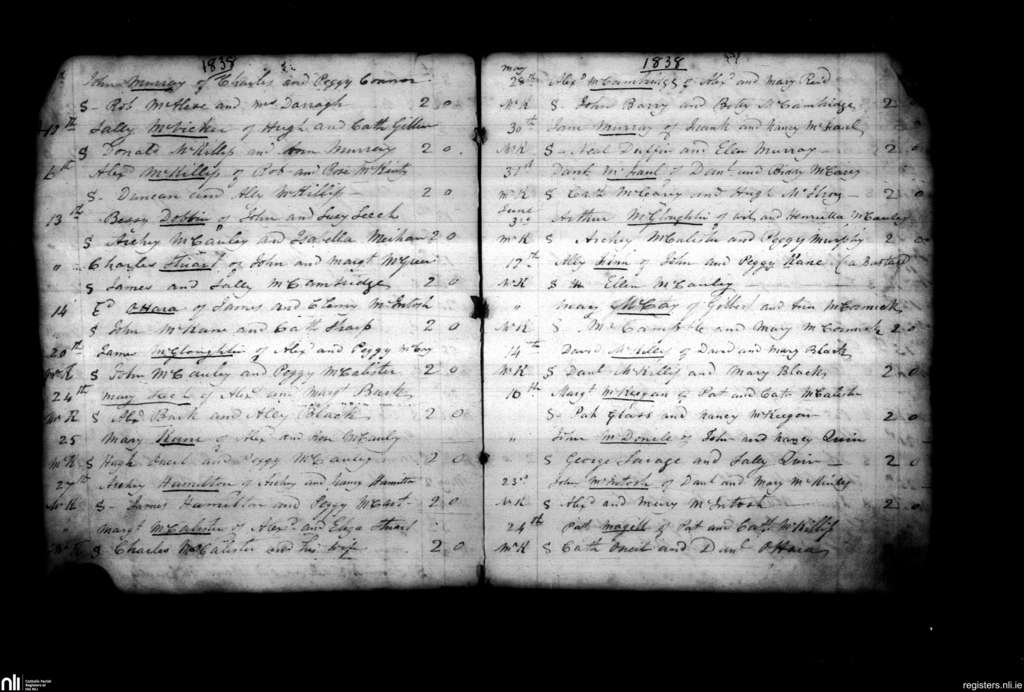 1838
John Murray of Charles and Peggy Connor
S - Rob McAlese and Mrs Darragh 2 0
13th Sally McVicker of Hugh and Cath Gillen
S Donald McKillip and Ann Murray 2 0
Alexr McKillip of Rob and Rose
S - Duncan and Alexr McKillip - 2 0
13th Bessy Dobbin of John and Lucy Leech
S Archey McCauley and Isabella Meehan 2 0
" " Charles Stuart of John and Margt McGreer
S James and Sally McCambridge 2 0
14 Ed OHara of James and McIntosh
S John McKane and Cath Sharp 2 0
20th James McCloughlin of Alexr and Peggy McCoy
McK S John McCauley and Peggy McCalister 2 0
24th Mary of Alexr and Margt Black
McK S Alexr Black and Aley Black 2 0
25 Mary Kane of Alexr and Rose McCauly
McK S Hugh Oneil and Peggy McCauley 2 0
27th Archey Hamilton of Archey and Hamilton
McK S - James Hamilton and Peggy 2 0
" Margt McCalister of Alexr and Eliza Stuart
McK S Charles McCalister and his wife 2 0
1838
May
28th Alexr McCambridge of Alexr and Mary Reid
McK S - John Barry and Betty McCambridge 2
30th Jane Murray of Frank and Nancy McFaul
McK S - Neal Duffin and Ellen Murray - 2 0
31st Danl McFaul of Danl and McCarey
McK S Cath McCarey and Hugh McIlroy - 2 0
June
3rd Arthur McCloughlin of and Henrietta McCauley
McK S Archey McCalister and Peggy Murphy 2 0
12th Alley Linn of John and Peggy Kane (a Bastard
McK S Ellen McCauley -
" Mary McCoy of and Ann McCormick
McK S - McCampble and Mary McCormick 2 0
14th David of David and Mary Black
McK S Danl McKillip and Mary Black 2 0
16th Margt McKeegan of Pat and Cath McCalister
S - Pat Glass and Nancy McKeegan 2 0
" John McDonell of John and Nancy Quin
S George Savage and Sally Quin - 2 0
23rd John McIntosh of Danl and Mary McKinley
McK S Alexr and Mary McIntosh 2 0
24th Pat Magill of Pat and Cath McKillip
McK S Cath Oneil and Danl OHara
nli
Catholic Parish
Registers at
the NLI
registers.nli.ie